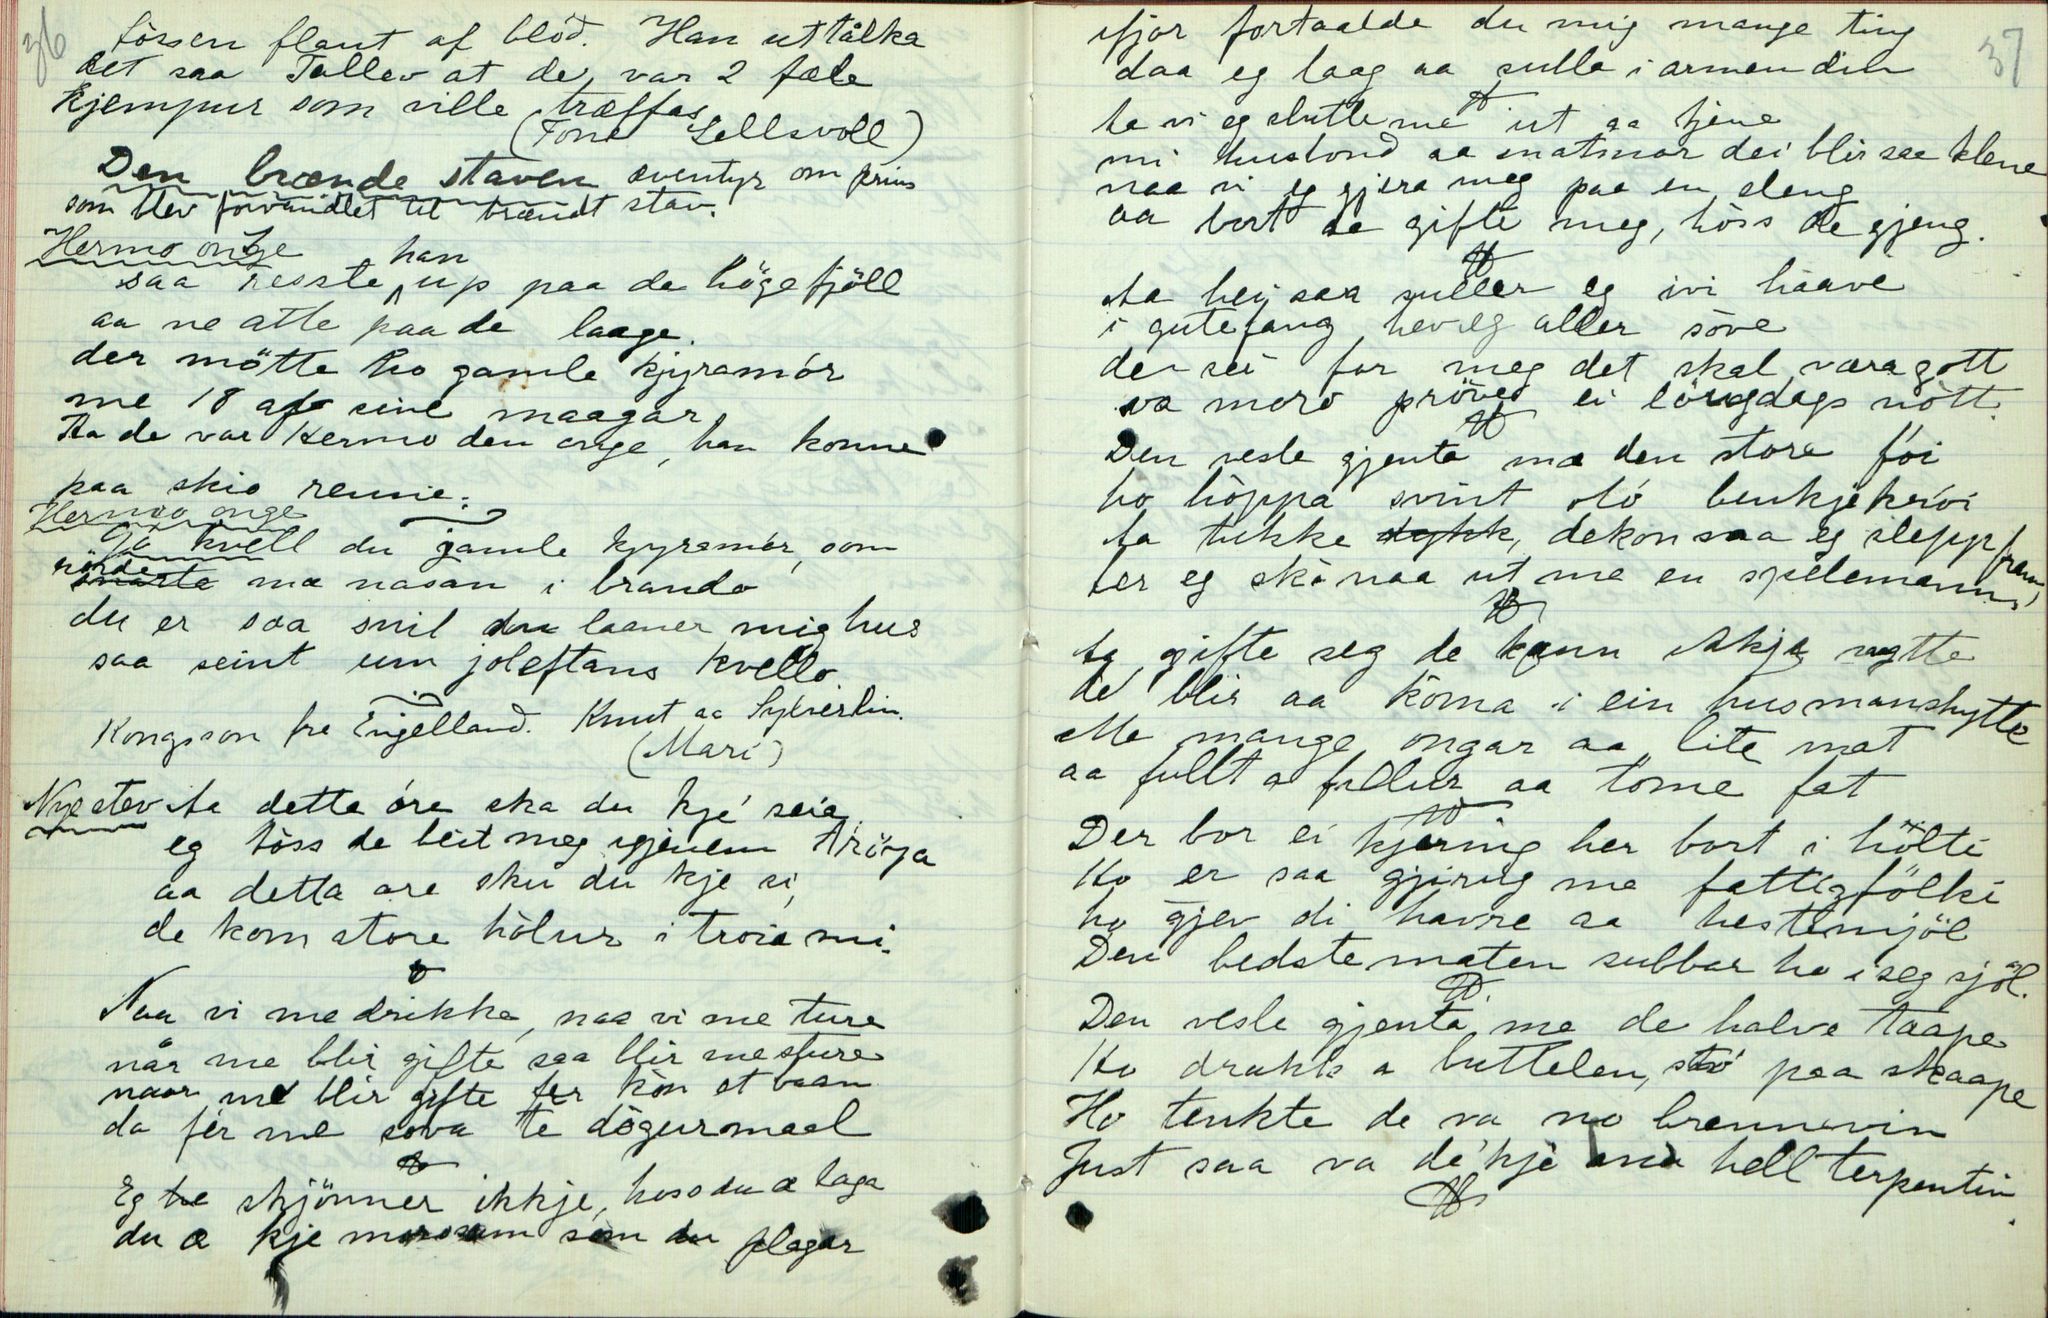 36
förssen flaut af blód. Han uttålka
det saa Tallev at de var 2 fæle
kjempur som ville træffas
(Tone Lellsvoll)
Den brænde staven eventyr om prins
som blev forvandlet til brændt stav.
Hermo onge
saa reiste han up paa de högefjöll
aa ne atte paa de laage.
der mötte ho gamle kjyramór
me 18 af sine maagar
Aa de var Hermo den onge, han konne
paa skio rennie.
Hermo onge
Go kvell du gamle kjyramór, som
rörde snarta mæ nasan i brando
du er saa snil du laaner mig hus
saa seint um joleftans kvello
Kongsson fra Engelland. Knut aa Sylverlin.
(Mari)
Nye stev Aa detta óre ska du kje seia
eg töss de beit meg igjenem tröya
aa detta ore sku du kje si,
de kom store hòlur i troia mi.
Naa vi me drikke, naa vi me ture
når me blir gifte saa blir me sture
naar me blir gifte fer kòn et baan
da fér me sova te dögurmaal
Eg skjönner ikkje, hoss du æ laga
du æ kje morosam som du plagar
37
ifjor fortaalde du mig mange ting
daa eg laag aa sulla i armen din
Aa vi eg slutte me ut aa tjene
mi husbond aa matmor dei blir saa klene
naa vi eg gjera meg paa en sleng
aa bort aa gifte meg, höss de gjeng.
Aa hei saa suller eg ivi haave
i gutefang hev eg aller sove
der sei for meg det skal væra gott
va moro pröve ei lörgdags nòtt.
Den vesle gjenta mæ den store fói
ho hòppa svint stó benkjekrói
Aa tukke, dekon saa eg slepp fram,
her eg skò naa ut me en spelemann
Aa gifte seg de kann ikkje nytte
de blir aa köma i ein husmanshytte
Me mange ongar aa lite mat
aa fullt a fillur aa tome fat
Der bor ei kjæring her bort i hölti
Ho er saa gjirug me fattigfölki
ho gjev di havre aa hestemjöl
Den bedste maten subbar ho i seg sjöl.
Den vesle gjenta me de halve taape
Ho drakk a buttelen, stó paa skaape
Ho tenkte de va no brennevin
Just saa va de kje hell terpentin.